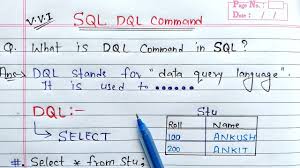 Page No.:
Date :
V.V.I
SQL DQL Command
Q. What is DQL Command in SQL?
Ans → DQL stands for "data query language".
It is used to ......
DQL:-
SELECT
Stu
Roll Name
100 ANKUSH
200 ANKIT
#. Select * from Stu;